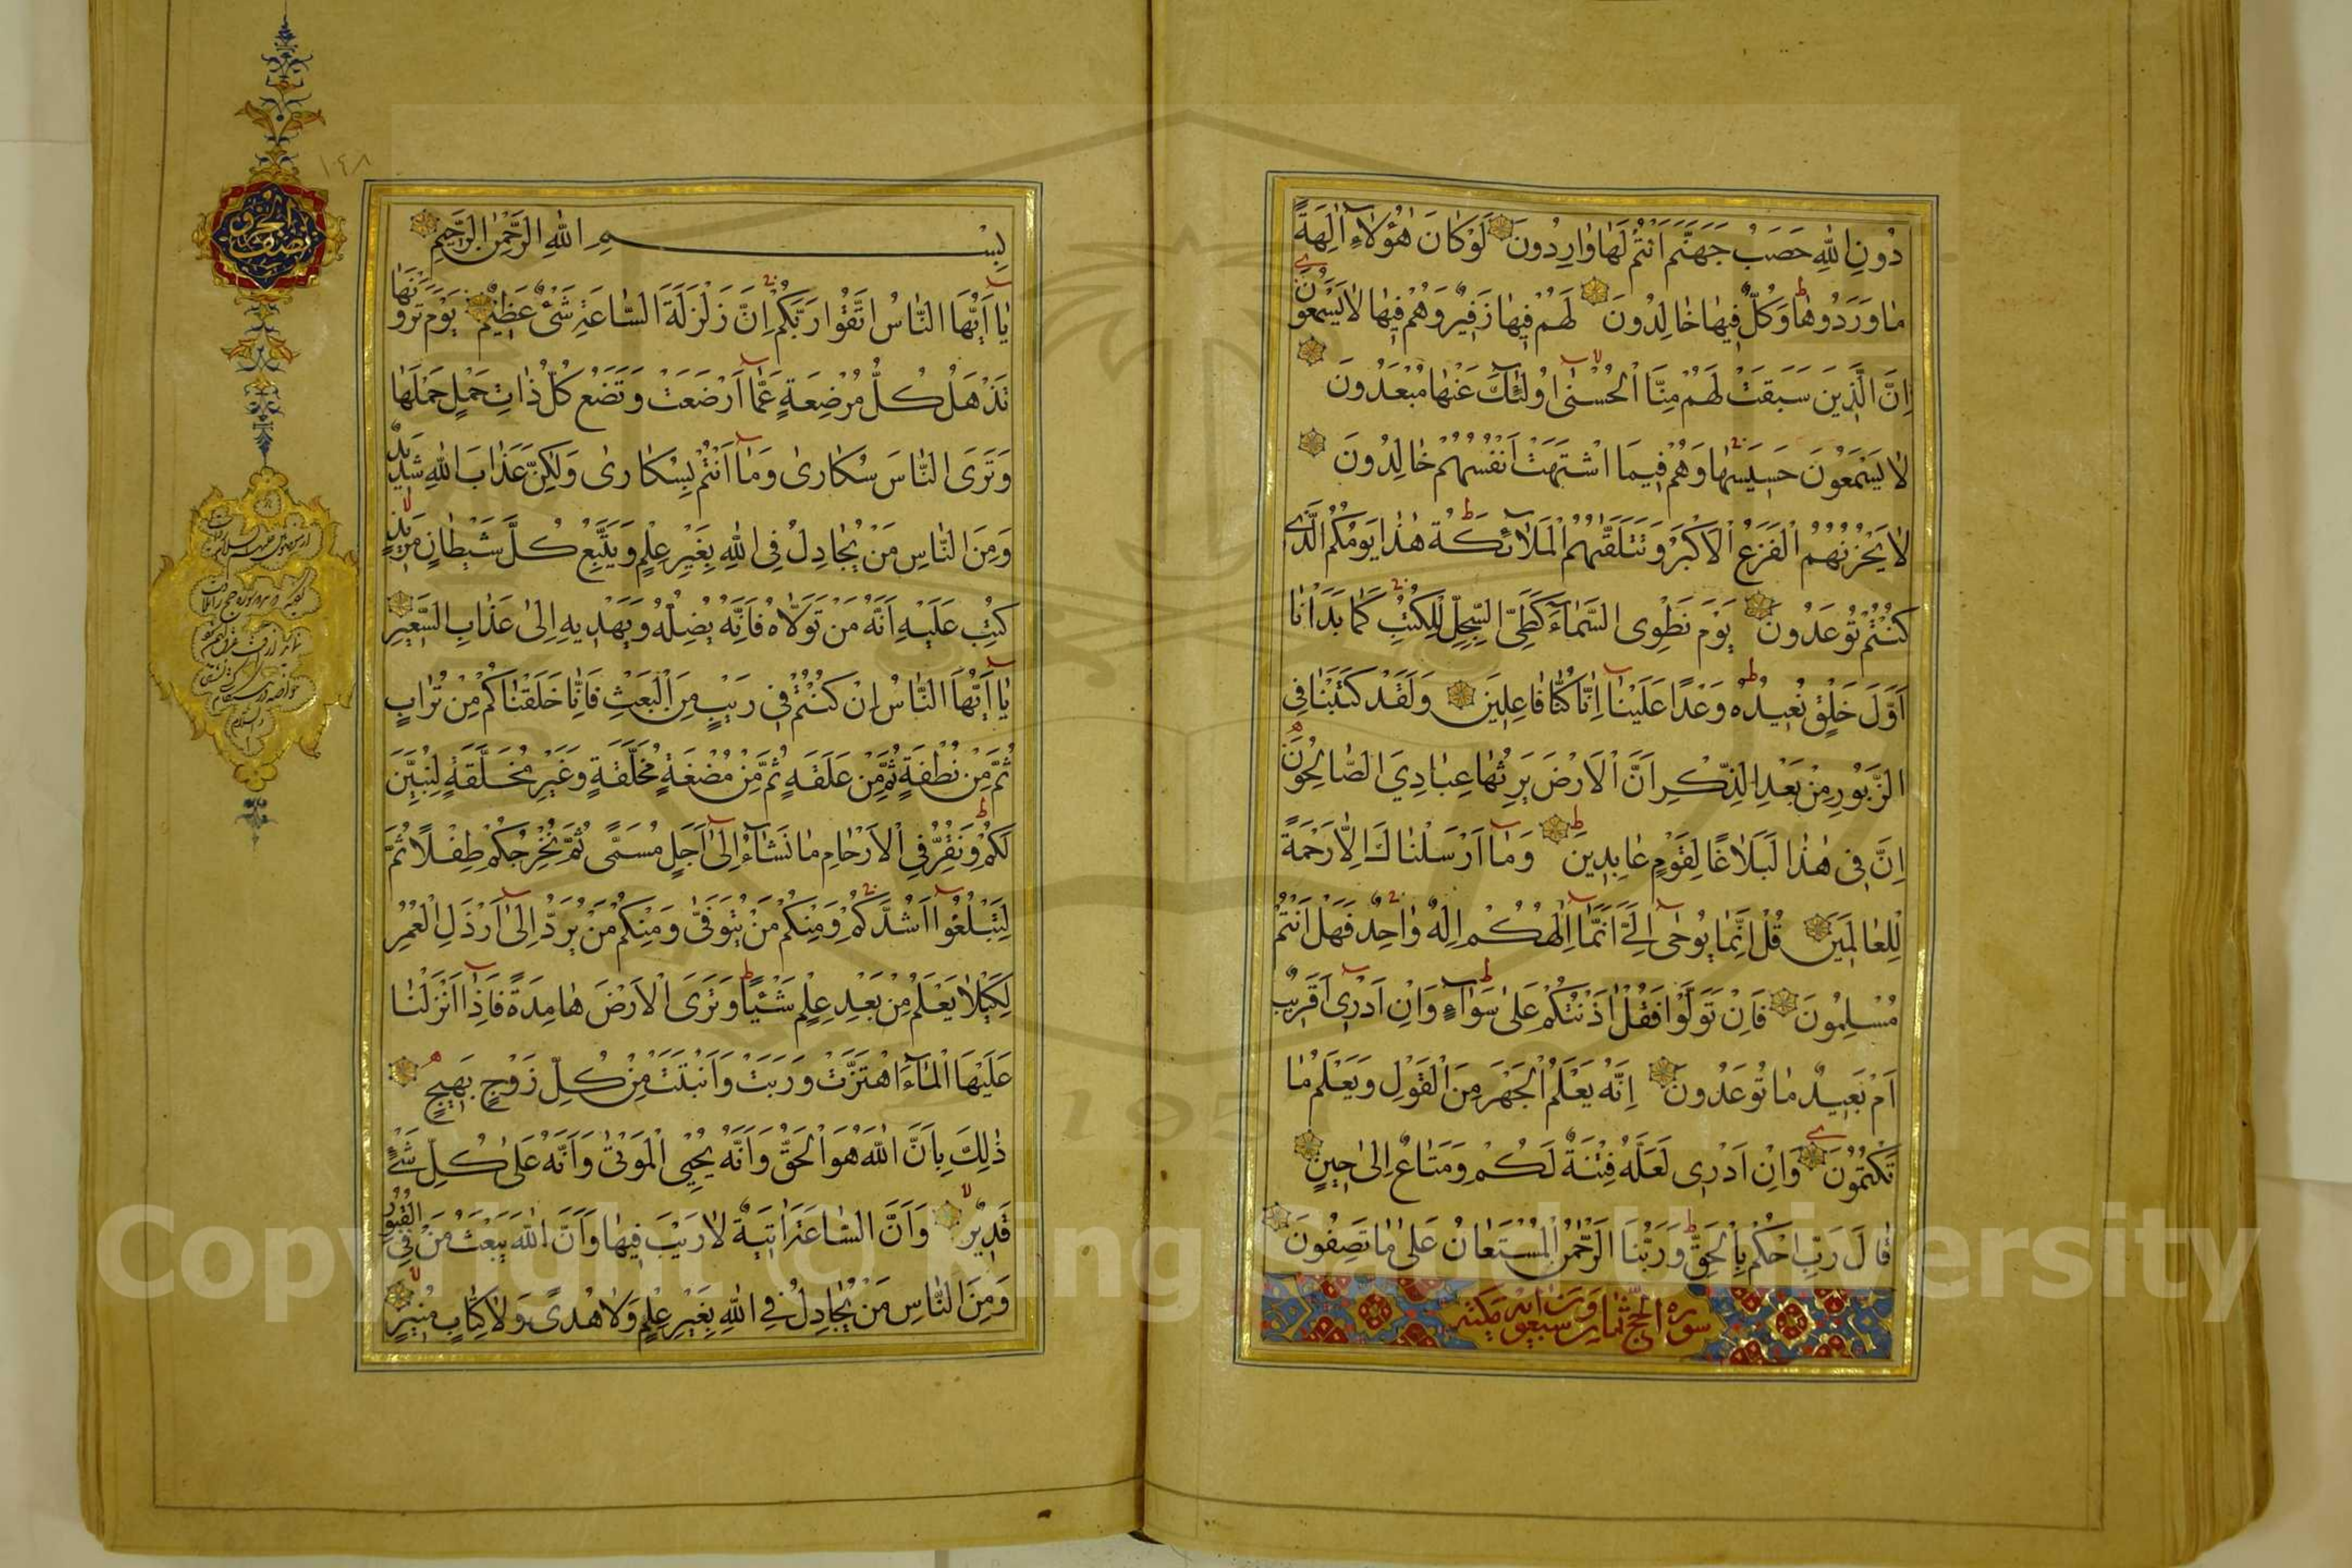 دُونِ اللّٰهِ حَصَبُ جَهَنَّمَ اَنْتُمْ لَهَا وَارِدُونَ لَوْ كَانَ هٰؤُلَاءِ اٰلِهَةً
مَا وَرَدُوهَا وَكُلٌّ فِيهَا خَالِدُونَ لَهُمْ فِيهَا زَفِيرٌ وَهُمْ فِيهَا لَا يَسْمَعُونَ
اِنَّ الَّذِينَ سَبَقَتْ لَهُمْ مِنَّا الْحُسْنٰى اُولٰئِكَ عَنْهَا مُبْعَدُونَ
لَا يَسْمَعُونَ حَسِيسَهَا وَهُمْ فِيمَا اشْتَهَتْ اَنْفُسُهُمْ خَالِدُونَ
لَا يَحْزُنُهُمُ الْفَزَعُ الْاَكْبَرُ وَتَتَلَقّٰيهُمُ الْمَلَائِكَةُ هٰذَا يَوْمُكُمُ الَّذِى
كُنْتُمْ تُوعَدُونَ يَوْمَ نَطْوِى السَّمَاءَ كَطَىِّ السِّجِلِّ لِلْكُتُبِ كَمَا بَدَاْنَا
اَوَّلَ خَلْقٍ نُعِيدُهُ وَعْدًا عَلَيْنَا اِنَّا كُنَّا فَاعِلِينَ وَلَقَدْ كَتَبْنَا فِى
الزَّبُورِ مِنْ بَعْدِ الذِّكْرِ اَنَّ الْاَرْضَ يَرِثُهَا عِبَادِيَ الصَّالِحُونَ
اِنَّ فِى هٰذَا لَبَلَاغًا لِقَوْمٍ عَابِدِينَ وَمَا اَرْسَلْنَاكَ اِلَّا رَحْمَةً
لِلْعَالَمِينَ قُلْ اِنَّمَا يُوحٰى اِلَيَّ اَنَّمَا اِلٰهُكُمْ اِلٰهٌ وَاحِدٌ فَهَلْ اَنْتُمْ
مُسْلِمُونَ فَاِنْ تَوَلَّوْا فَقُلْ اٰذَنْتُكُمْ عَلٰى سَوَاءٍ وَاِنْ اَدْرِى اَقَرِيبٌ
اَمْ بَعِيدٌ مَا تُوعَدُونَ اِنَّهُ يَعْلَمُ الْجَهْرَ مِنَ الْقَوْلِ وَيَعْلَمُ مَا
تَكْتُمُونَ وَاِنْ اَدْرِى لَعَلَّهُ فِتْنَةٌ لَكُمْ وَمَتَاعٌ اِلٰى حِينٍ
قَالَ رَبِّ احْكُمْ بِالْحَقِّ وَرَبُّنَا الرَّحْمٰنُ الْمُسْتَعَانُ عَلٰى مَا تَصِفُونَ
سورة الحج ثمان وسبعون آية مكية
بِسْمِ اللّٰهِ الرَّحْمٰنِ الرَّحِيمِ
يَا اَيُّهَا النَّاسُ اتَّقُوا رَبَّكُمْ اِنَّ زَلْزَلَةَ السَّاعَةِ شَىْءٌ عَظِيمٌ يَوْمَ تَرَوْنَهَا
تَذْهَلُ كُلُّ مُرْضِعَةٍ عَمَّا اَرْضَعَتْ وَتَضَعُ كُلُّ ذَاتِ حَمْلٍ حَمْلَهَا
وَتَرَى النَّاسَ سُكَارٰى وَمَا اَنْتُمْ بِسُكَارٰى وَلٰكِنَّ عَذَابَ اللّٰهِ شَدِيدٌ
وَمِنَ النَّاسِ مَنْ يُجَادِلُ فِى اللّٰهِ بِغَيْرِ عِلْمٍ وَيَتَّبِعُ كُلَّ شَيْطَانٍ مَرِيدٍ
كُتِبَ عَلَيْهِ اَنَّهُ مَنْ تَوَلَّاهُ فَاَنَّهُ يُضِلُّهُ وَيَهْدِيهِ اِلٰى عَذَابِ السَّعِيرِ
يَا اَيُّهَا النَّاسُ اِنْ كُنْتُمْ فِى رَيْبٍ مِنَ الْبَعْثِ فَاِنَّا خَلَقْنَاكُمْ مِنْ تُرَابٍ
ثُمَّ مِنْ نُطْفَةٍ ثُمَّ مِنْ عَلَقَةٍ ثُمَّ مِنْ مُضْغَةٍ مُخَلَّقَةٍ وَغَيْرِ مُخَلَّقَةٍ لِنُبَيِّنَ
لَكُمْ وَنُقِرُّ فِى الْاَرْحَامِ مَا نَشَاءُ اِلٰى اَجَلٍ مُسَمًّى ثُمَّ نُخْرِجُكُمْ طِفْلًا ثُمَّ
لِتَبْلُغُوا اَشُدَّكُمْ وَمِنْكُمْ مَنْ يُتَوَفّٰى وَمِنْكُمْ مَنْ يُرَدُّ اِلٰى اَرْذَلِ الْعُمُرِ
لِكَيْلَا يَعْلَمَ مِنْ بَعْدِ عِلْمٍ شَيْئًا وَتَرَى الْاَرْضَ هَامِدَةً فَاِذَا اَنْزَلْنَا
عَلَيْهَا الْمَاءَ اهْتَزَّتْ وَرَبَتْ وَاَنْبَتَتْ مِنْ كُلِّ زَوْجٍ بَهِيجٍ
ذٰلِكَ بِاَنَّ اللّٰهَ هُوَ الْحَقُّ وَاَنَّهُ يُحْيِى الْمَوْتٰى وَاَنَّهُ عَلٰى كُلِّ شَىْءٍ
قَدِيرٌ وَاَنَّ السَّاعَةَ اٰتِيَةٌ لَا رَيْبَ فِيهَا وَاَنَّ اللّٰهَ يَبْعَثُ مَنْ فِى الْقُبُورِ
وَمِنَ النَّاسِ مَنْ يُجَادِلُ فِى اللّٰهِ بِغَيْرِ عِلْمٍ وَلَا هُدًى وَلَا كِتَابٍ مُنِيرٍ
١٤٨
Copyright © King Saud University
195